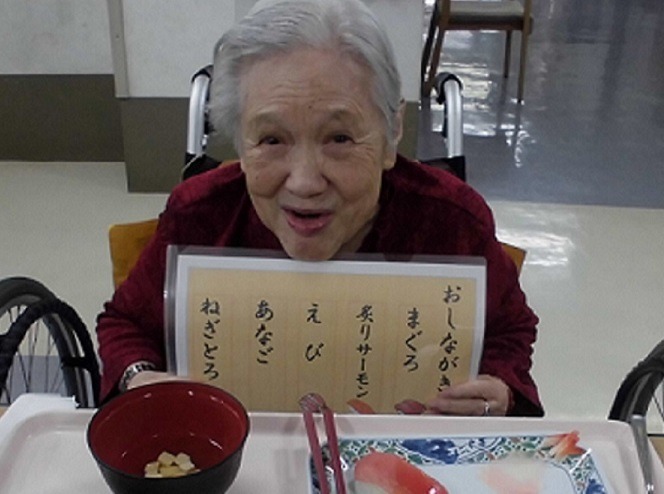 おしながき
まぐろ
炙りサーモン
えび
あなご
ねぎとろ